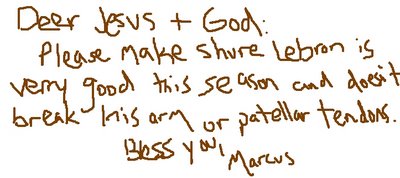 Deer Jesus + God:
Please make shure Lebron is
very good this season and doesit
break his arm or patellar tendons.
Bless you,
Marcus